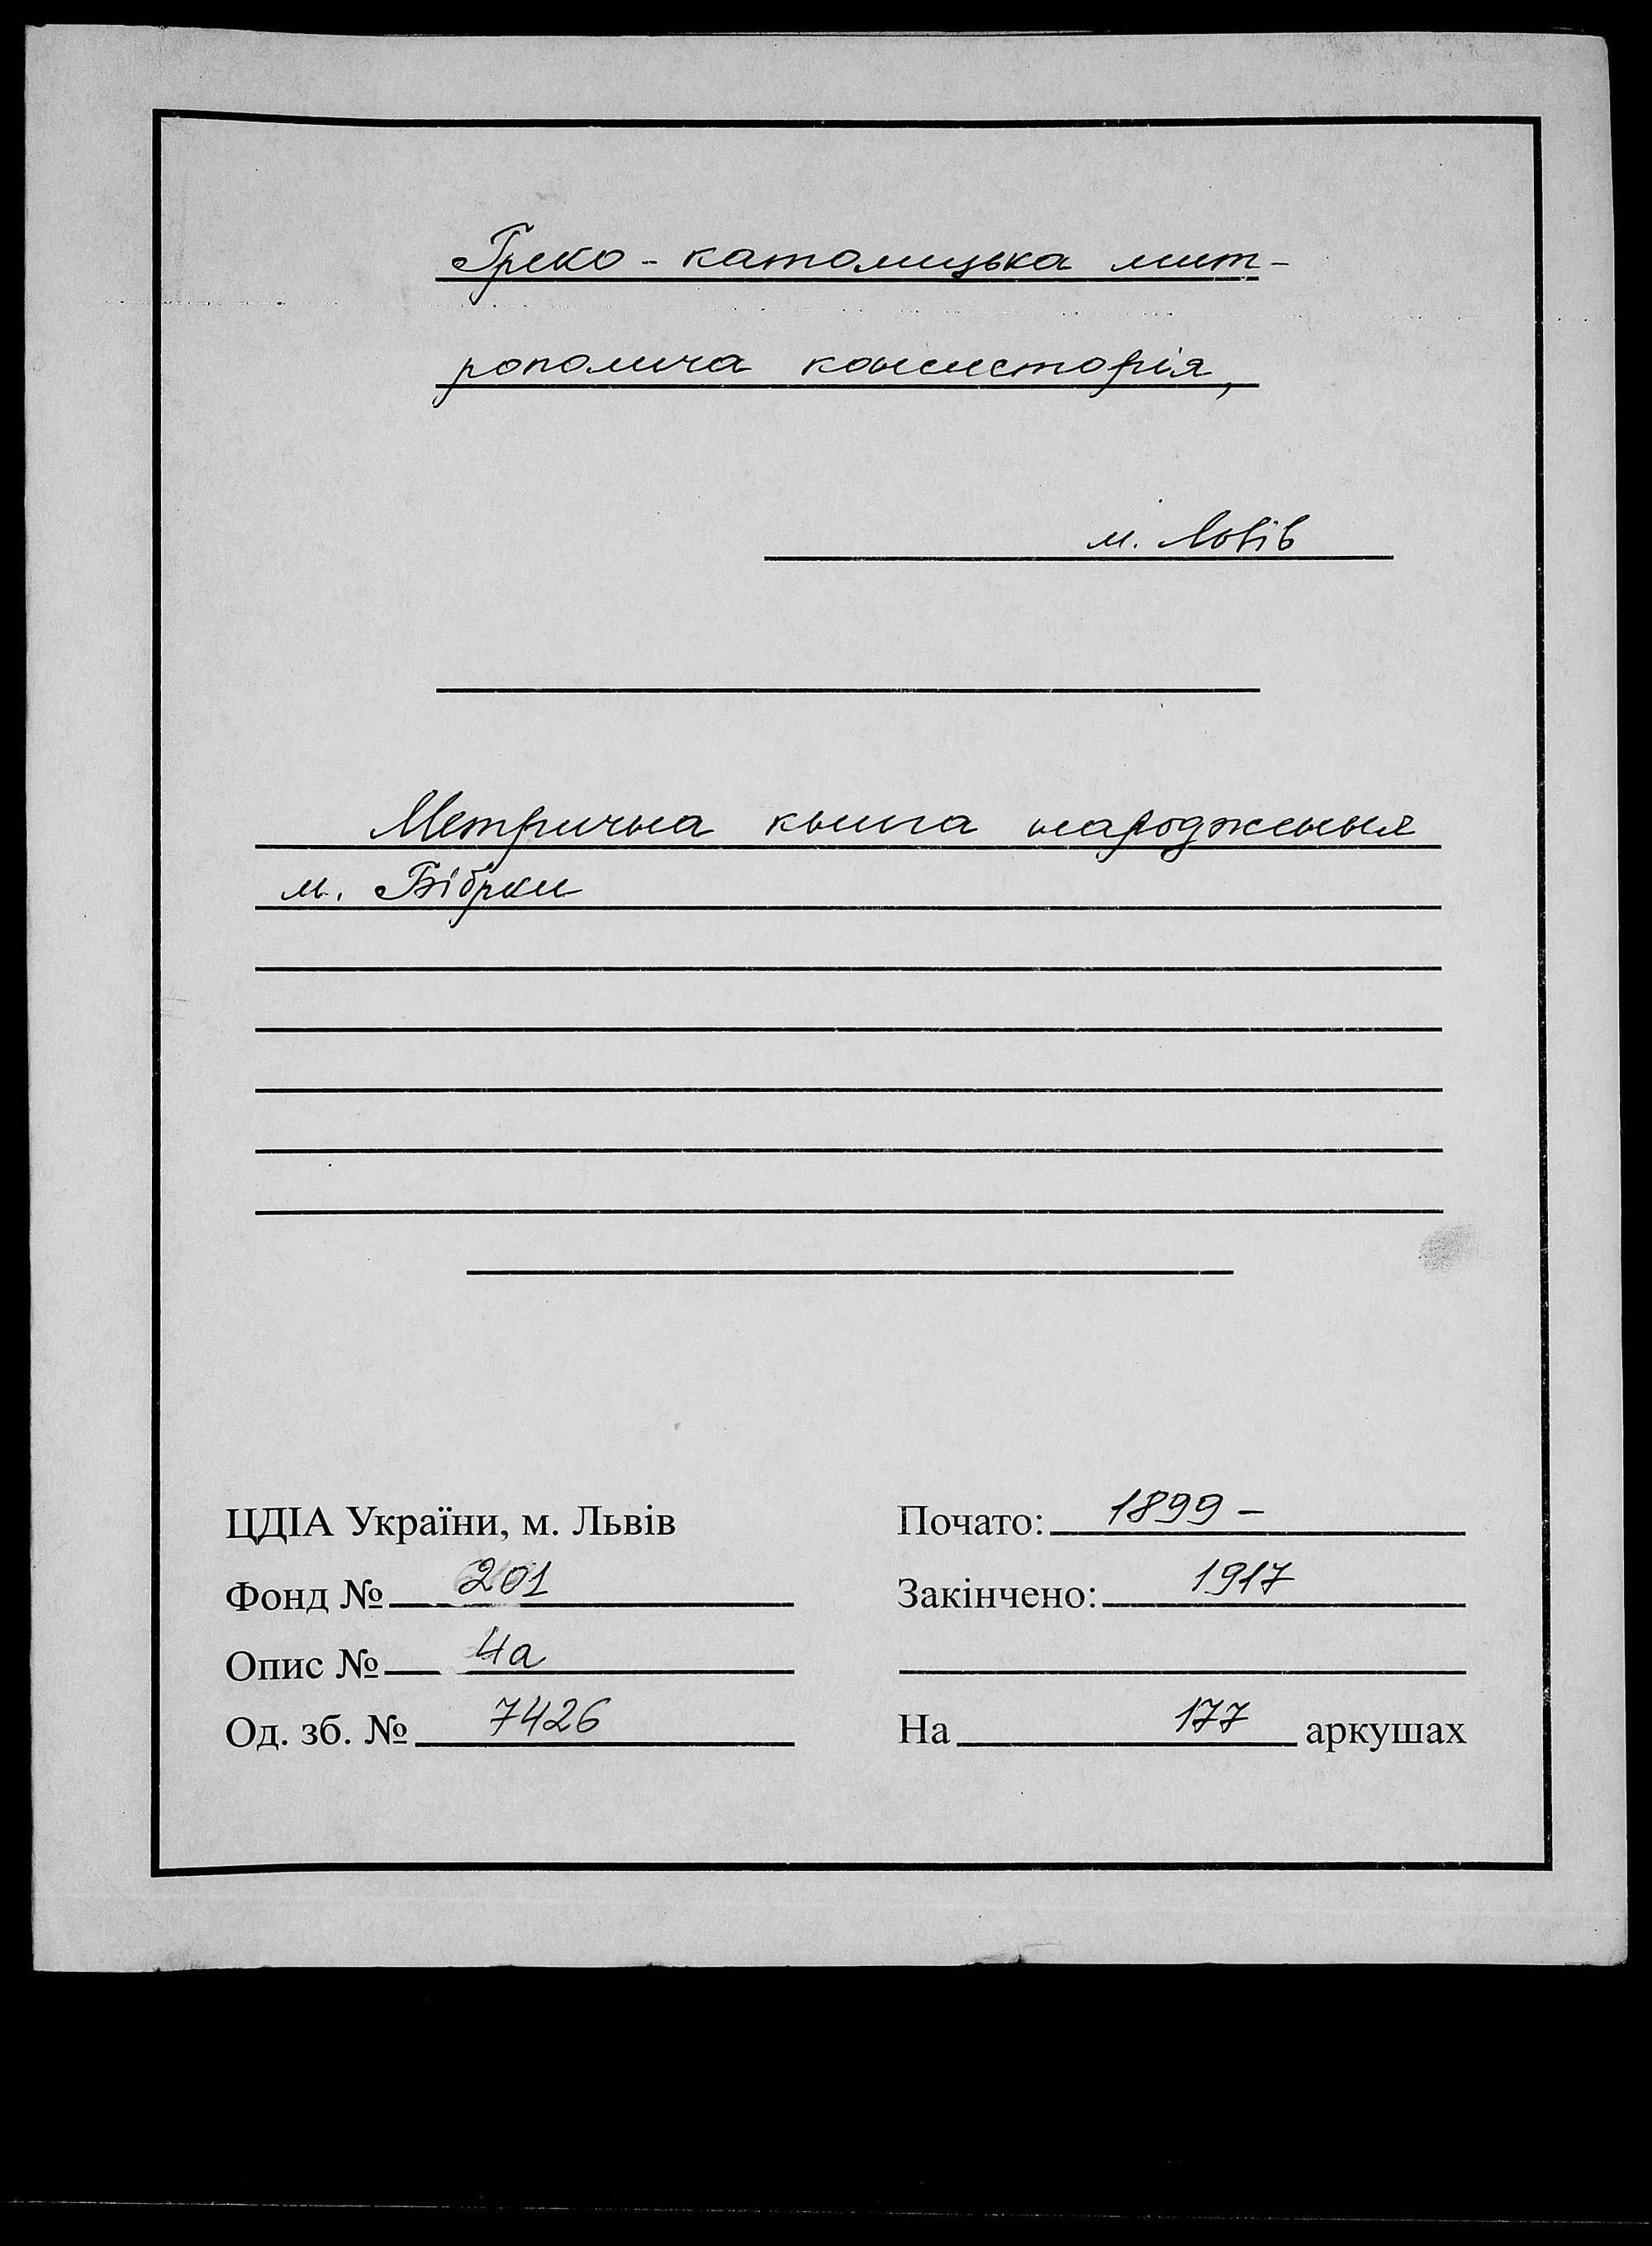 Греко-католицька мит-
рополича консисторія,
м. Львів
Метрична книга народження
м. Бібрки
ЦДІА України, м. Львів
Фонд № 201
Опис № 4а
Од. зб. № 7426
Почато: 1899 –
Закінчено: 1917
На 177 аркушах